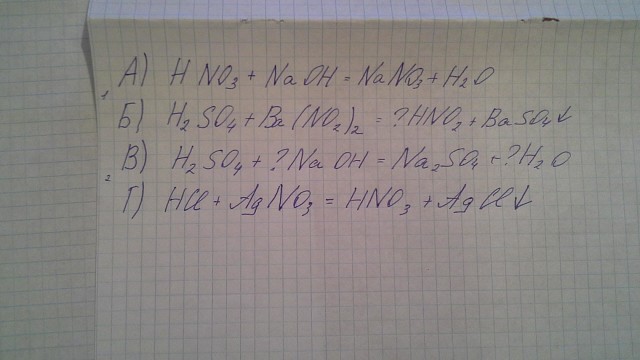 А) HNO3 + NaOH = NaNO3 + H2O
1
Б) H2SO4 + Ba(NO2)2 = ?HNO2 + BaSO4↓
В) H2SO4 + ?NaOH = Na2SO4 + ?H2O
2
Г) HCl + AgNO3 = HNO3 + AgCl↓